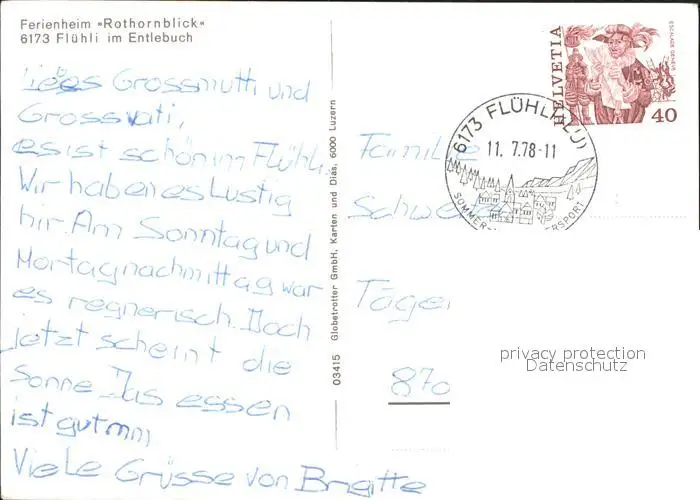 Ferienheim »Rothornblick«
6173 Flühli im Entlebuch
Liebes Grossmutti und
Grossvati,
es ist schön im Flühli.
Wir haben es Lustig
hir. Am Sonntag und
Montagnachmittag war
es regnerisch. Doch
jetzt scheint die
Sonne. Das essen
ist gut mm
Viele Grüsse von Brigitte
03415 Globetrotter GmbH, Karten und Dias, 6000 Luzern
HELVETIA
ESCALADE GENÈVE
40
6173 FLÜHLI (LU)
11.7.78-11
SOMMER- ERSPORT
Familie
Schwe
Täge
870
privacy protection
Datenschutz